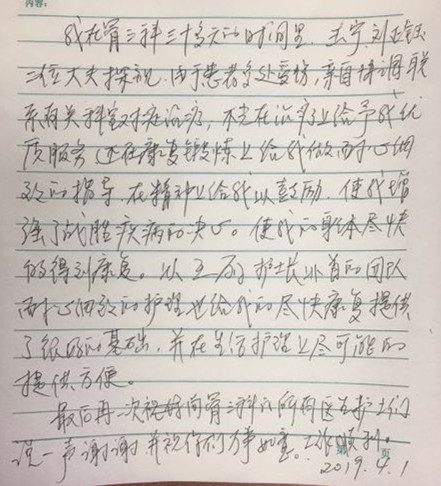 内容:
我在骨三科三十多天的时间里,王宁、刘
二位大夫探视,由于患者多处受伤,亲自协调联
系有关科室对症治疗,不光在治疗上给予我优
质服务,还在康复锻炼上给我做耐心细
致的指导,在精神上给我以鼓励,使我增
强了战胜疾病的决心。使我的身体尽快
的得到康复。以王 护士长为首的团队
耐心细致的护理也给我的尽快康复提供
了很好的基础,并在生活护理上尽可能的
提供方便。
最后再一次祝好向骨三科的所有医生护士们
说一声谢谢并祝你们万事如意。工作顺利。
第 页
2019.4.1